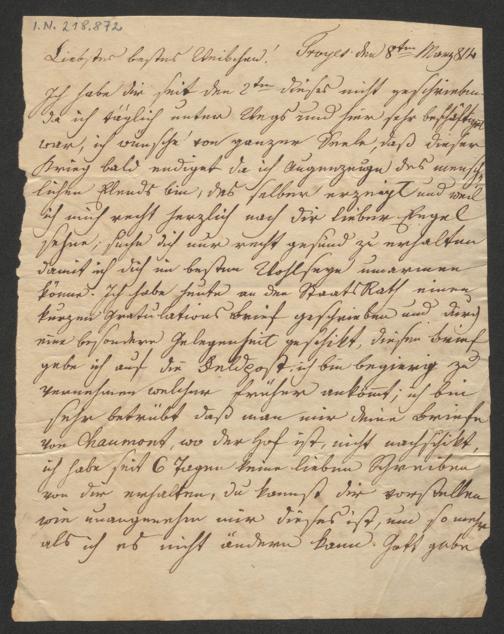 I.N. 218.872
Liebstes bestes Weibchen! Troyes den 8ten März 814
Ich habe dir seit den 2ten dieses nicht geschrieben
da ich täglich unter Wegs und hier sehr beschäftigt
war, ich wünsche von ganzer Seele, daß dieser
Krieg bald endiget da ich Augenzeuge des mensch
lichen Elends bin, das selber erzeigt und weil
ich mich recht herzlich nach dir lieber Engel
sehne; suche dich nur recht gesund zu erhalten
damit ich dich im besten Wohlseyn umarmen
könne. Ich habe heute an den StaatsRath einen
kurzen Gratulations Brief geschrieben und durch
eine besondere Gelegenheit geschikt, diesen brief
gebe ich auf die Feldpost, ich bin begierig zu
vernehmen welcher früher ankömmt; ich bin
sehr betrübt daß man mir deine Briefe
von Chaumont, wo der Hof ist, nicht nachschikt,
ich habe seit 6 Tagen keine lieben Schreiben
von dir erhalten, du kannst dir vorstellen
wie unangenehm mir dieses ist, um so mehr
als ich es nicht ändern kann. Gott gebe